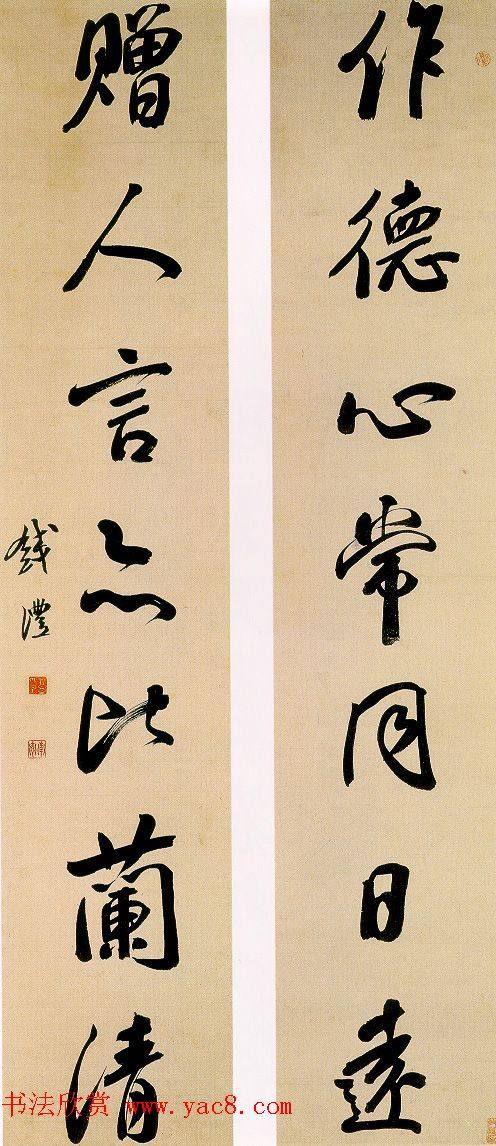 作德心常同日遠
贈人言亦比蘭清
錢灃
书法欣赏 www.yac8.com